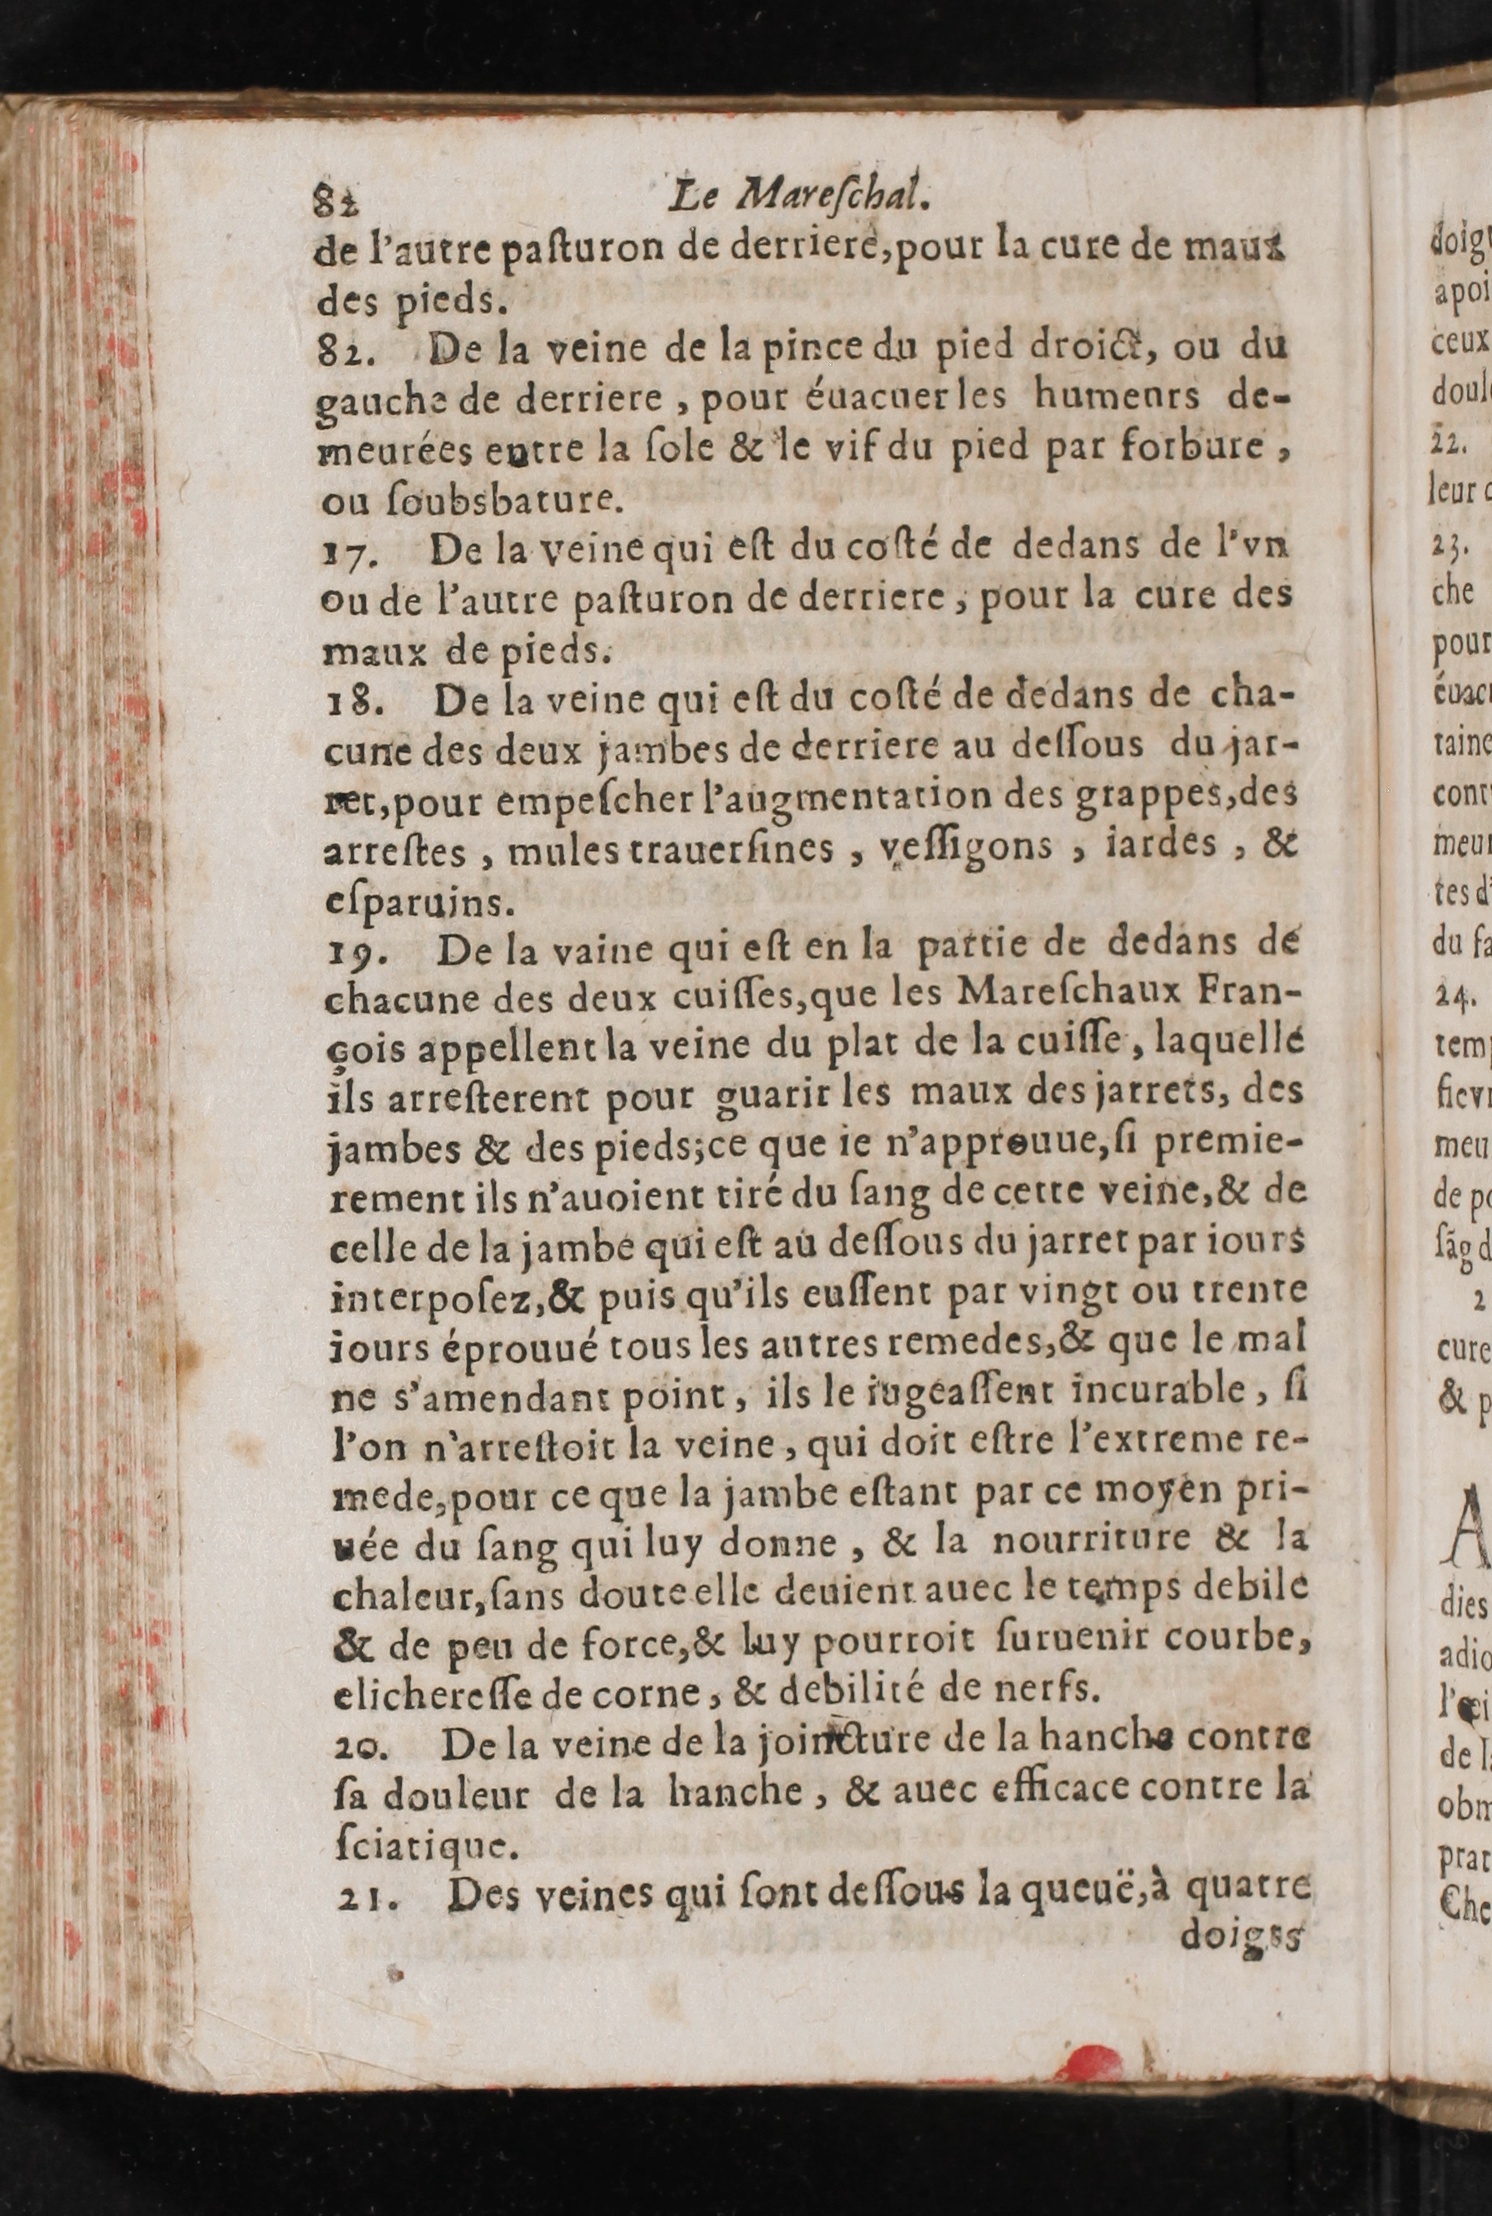 82 Le Mareſchal.
de l'autre paſturon de derriere,pour la cure de maux
des pieds.
82. De la veine de la pince du pied droict, ou du
gauche de derriere , pour éuacuer les humenrs de-
meurées entre la ſole & le vif du pied par forbure ,
ou ſoubsbature.
17. De la veine qui eſt du coſté de dedans de l'vn
ou de l'autre paſturon de derriere , pour la cure des
maux de pieds.
18. De la veine qui eſt du coſté de dedans de cha-
cune des deux jambes de derriere au deſſous du jar-
ret,pour empeſcher l'augmentation des grappes,des
arreſtes , mules trauerſines , veſſigons , iardes , &
eſparuins.
19. De la vaine qui eſt en la partie de dedans de
chacune des deux cuiſſes,que les Mareſchaux Fran-
çois appellent la veine du plat de la cuiſſe , laquelle
ils arreſterent pour guarir les maux des jarrets, des
jambes & des pieds;ce que ie n'approuue,ſi premie-
rement ils n'auoient tiré du ſang de cette veine,& de
celle de la jambe qui eſt au deſſous du jarret par iours
interpoſez,& puis qu'ils euſſent par vingt ou trente
iours éprouué tous les autres remedes,& que le mal
ne s'amendant point , ils le iugeaſſent incurable , ſi
l'on n'arreſtoit la veine , qui doit eſtre l'extreme re-
mede,pour ce que la jambe eſtant par ce moyen pri-
uée du ſang qui luy donne , & la nourriture & la
chaleur,ſans doute elle deuient auec le temps debile
& de peu de force,& luy pourroit ſuruenir courbe,
elichereſſe de corne , & debilité de nerfs.
20. De la veine de la joincture de la hanche contre
ſa douleur de la hanche , & auec efficace contre la
ſciatique.
21. Des veines qui ſont deſſous la queuë,à quatre
doigss
doig
apoi
ceux
doul
22.
leur
23.
che
pour
éuac
taine
cont
meu
tes d'
du ſa
24.
tem
fiev
meu
de p
ſãg d
2
cure
& p
A
dies
adio
l'œi
de l
obm
prat
Che